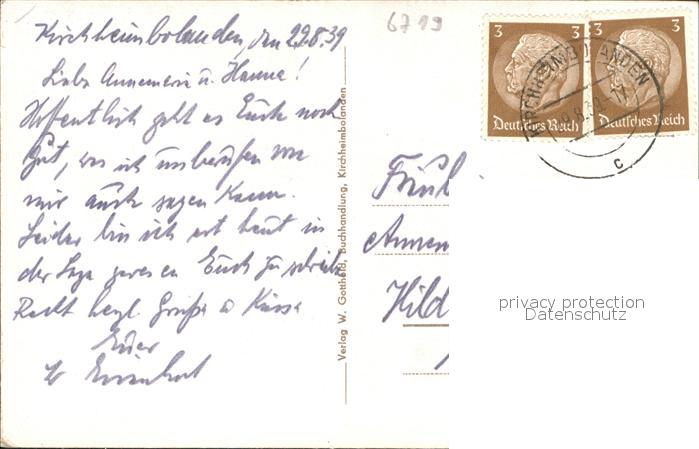 Kirchheimbolanden, den 29.8.39
Liebe Annemarie u. Hanna!
Hoffentlich geht es Euch noch
Gut, was ich unberufen von
mir auch sagen kann.
Leider bin ich erst heut in
der Lage gewesen Euch zu schreiben
Recht herzl Grüße u Küsse
Euer
6719
Verlag W. Gotthold, Buchhandlung, Kirchheimbolanden
3 3
Deutsches Reich
3 3
Deutsches Reich
KIRCHHEIMBOLANDEN
c
Hild
privacy protection
Datenschutz